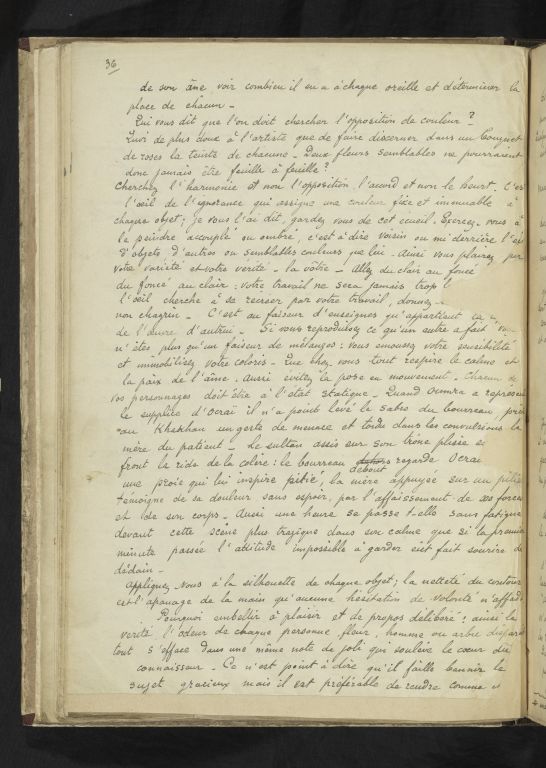 36
de son âne, voir combien il en a à chaque oreille et déterminer la
place de chacun _
Qui vous dit que l'on doit chercher l'opposition de couleur ?
Quoi de plus doux à l'artiste que de faire discerner dans un bouquet
de roses la teinte de chacune _ Deux fleurs semblables ne pourraient
donc jamais être feuille à feuille ?
Cherchez l'harmonie et non l'opposition, l'accord et non le heurt. C'est
l'œil de l'ignorance qui assigne une couleur fixe et immuable à
chaque objet ; je vous l'ai dit, gardez vous de cet écueil. Exercez-vous à
le peindre accouplé ou ombré, c'est à dire voisin ou mi derrière l'éc
d'objets d'autres ou semblables couleurs que lui. Ainsi vous plairez par
votre variété et votre vérité _ la vôtre _ Allez du clair au foncé
du foncé au clair : votre travail ne sera jamais trop
l'œil cherche à se recréer par votre travail, donnez-
non chagrin _ C'est au faiseur d'enseignes qu'appartient
de l'œuvre d'autrui _ Si vous reproduisez ce qu'un autre a fait
n'êtes plus qu'un faiseur de mélanges : vous émoussez votre sensibilité
et immobilisez votre coloris _ Que chez vous tout respire le calme et
la paix de l'âme. Aussi évitez la pose en mouvement _ Chacun de
vos personnages doit être à l'état statique _ Quand Oumra a représen
le supplice d'Ocrai il n'a point levé le sabre du bourreau, prêt
au Khakhan un geste de menace et tordu dans les convulsions la
mère du patient _ Le sultan assis sur son trône plisse
front la ride de la colère : le bourreau debout regarde Ocrai
une proie qui lui inspire pitié, la mère appuyée sur un pilier
témoigne de sa douleur sans espoir, par l'affaissement de ses forces
et de son corps _ Aussi une heure se passe t-elle sans fatigue
devant cette scène plus tragique dans son calme que si la première
minute passée l'attitude impossible à garder eût fait sourire de
dédain _
Appliquez vous à la silhouette de chaque objet ; la netteté du contour
est l'apanage de la main qu'aucune hésitation de volonté n'affadit
Pourquoi embellir à plaisir et de propos délibéré ; ainsi la
vérité, l'odeur de chaque personne, fleur, homme ou arbre disparait
tout s'efface dans une même note de joli qui soulève le cœur du
connaisseur _ Ce n'est point à dire qu'il faille bannir le
sujet gracieux mais il est préférable de rendre comme